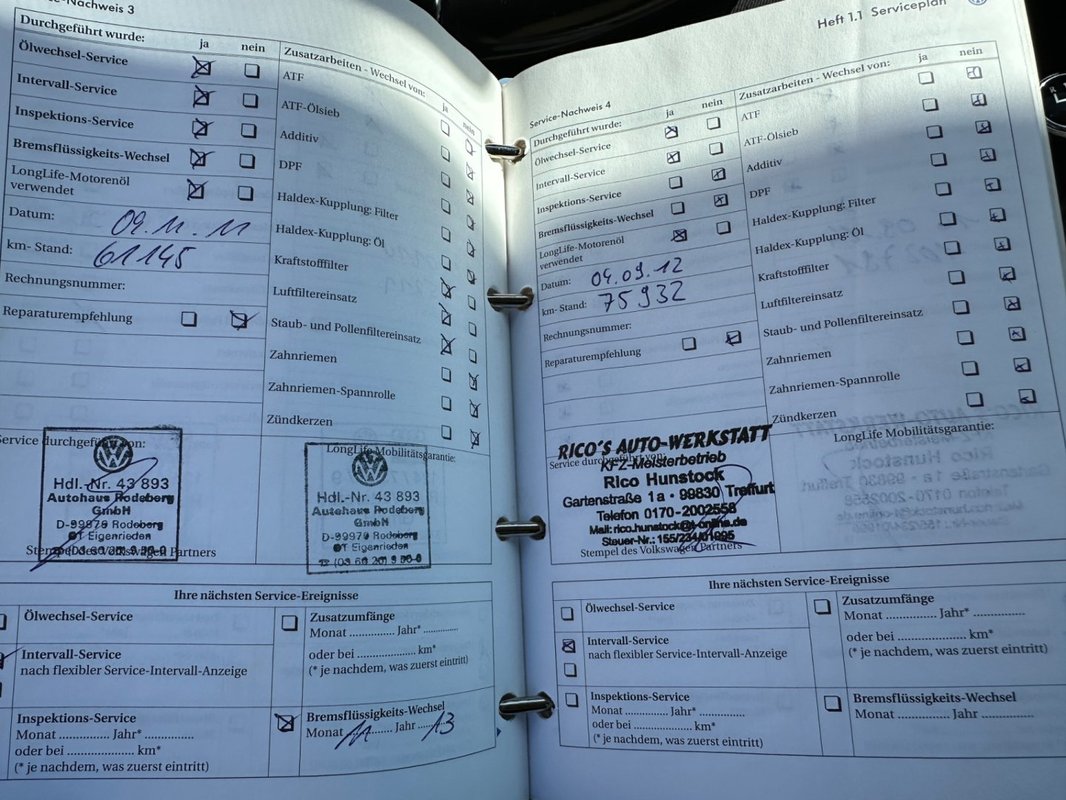 Service-Nachweis 3
Durchgeführt wurde: ja nein
Ölwechsel-Service
Intervall-Service
Inspektions-Service
Bremsflüssigkeits-Wechsel
LongLife-Motorenöl
verwendet
Datum: 09.11.11
km- Stand: 61145
Rechnungsnummer:
Reparaturempfehlung
Zusatzarbeiten - Wechsel von: ja nein
ATF
ATF-Ölsieb
Additiv
DPF
Haldex-Kupplung: Filter
Haldex-Kupplung: Öl
Kraftstofffilter
Luftfiltereinsatz
Staub- und Pollenfiltereinsatz
Zahnriemen
Zahnriemen-Spannrolle
Zündkerzen
Service durchgeführt von:
Hdl.-Nr. 43 893
Autohaus Rodeberg
GmbH
D-99976 Rodeberg
OT Eigenrieden
Stempel des Volkswagen Partners
LongLife Mobilitätsgarantie:
Hdl.-Nr. 43 893
Autohaus Rodeberg
GmbH
D-99976 Rodeberg
OT Eigenrieden
Ihre nächsten Service-Ereignisse
Ölwechsel-Service
Intervall-Service
nach flexibler Service-Intervall-Anzeige
Inspektions-Service
Monat ............... Jahr* ...............
oder bei ..................... km*
(* je nachdem, was zuerst eintritt)
Zusatzumfänge
Monat .............. Jahr* ............
oder bei ..................... km*
(* je nachdem, was zuerst eintritt)
Bremsflüssigkeits-Wechsel
Monat 11 Jahr 13
Heft 1.1 Serviceplan
Service-Nachweis 4
Durchgeführt wurde: ja nein
Ölwechsel-Service
Intervall-Service
Inspektions-Service
Bremsflüssigkeits-Wechsel
LongLife-Motorenöl
verwendet
Datum: 04.09.12
km- Stand: 75932
Rechnungsnummer:
Reparaturempfehlung
Zusatzarbeiten - Wechsel von: ja nein
ATF
ATF-Ölsieb
Additiv
DPF
Haldex-Kupplung: Filter
Haldex-Kupplung: Öl
Kraftstofffilter
Luftfiltereinsatz
Staub- und Pollenfiltereinsatz
Zahnriemen
Zahnriemen-Spannrolle
Zündkerzen
Service durchgeführt von:
RICO'S AUTO-WERKSTATT
KFZ-Meisterbetrieb
Rico Hunstock
Gartenstraße 1a • 99830 Treffurt
Telefon 0170-2002558
Mail: rico.hunstock@t-online.de
Steuer-Nr.: 155/234/01995
Stempel des Volkswagen Partners
LongLife Mobilitätsgarantie:
Ihre nächsten Service-Ereignisse
Ölwechsel-Service
Intervall-Service
nach flexibler Service-Intervall-Anzeige
Inspektions-Service
Monat .............. Jahr* ..............
oder bei ..................... km*
(* je nachdem, was zuerst eintritt)
Zusatzumfänge
Monat .............. Jahr* ..............
oder bei ..................... km*
(* je nachdem, was zuerst eintritt)
Bremsflüssigkeits-Wechsel
Monat .............. Jahr ..............